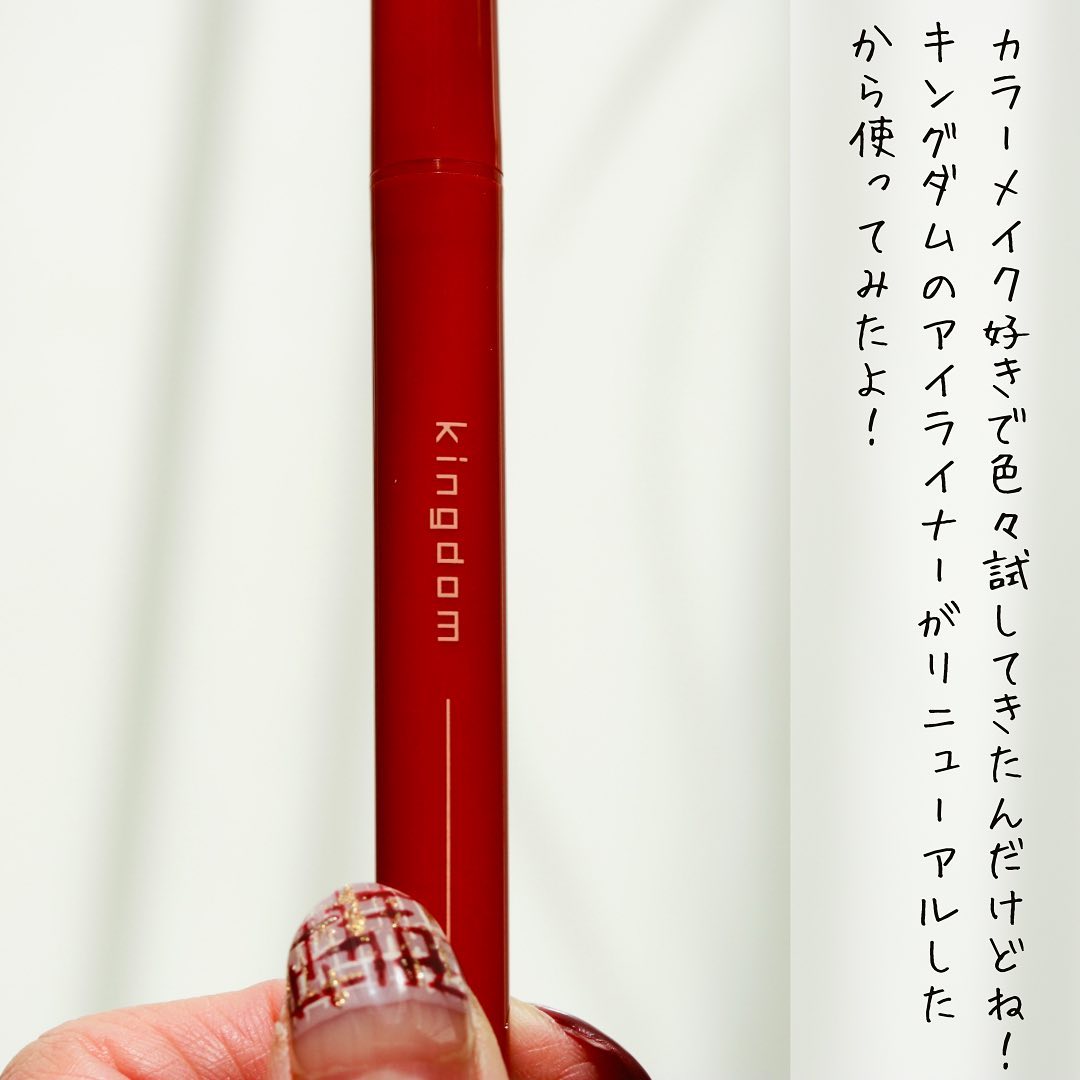 カラーメイク好きで色々試してきたんだけどね！
キングダムのアイライナーがリニューアルした
から使ってみたよ！
kingdom